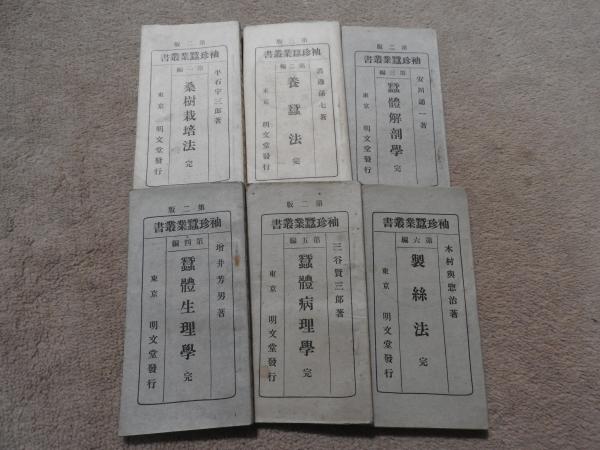 第二版
袖珍蠶業叢書
第一編
平石宇三郎著
桑樹栽培法 完
東京 明文堂發行
版
袖珍蠶業叢書
第二編
七著
養蠶法 完
東京 明文堂發行
第二版
袖珍蠶業叢書
第三編
安川 一著
蠶體解剖學 完
東京 明文堂發行
第二版
袖珍蠶業叢書
第四編
增井芳男著
蠶體生理學 完
東京 明文堂發行
第二版
袖珍蠶業叢書
第五編
三谷賢三郎著
蠶體病理學 完
東京 明文堂發行
袖珍蠶業叢書
第六編
木村與惣治著
製絲法 完
東京 明文堂發行